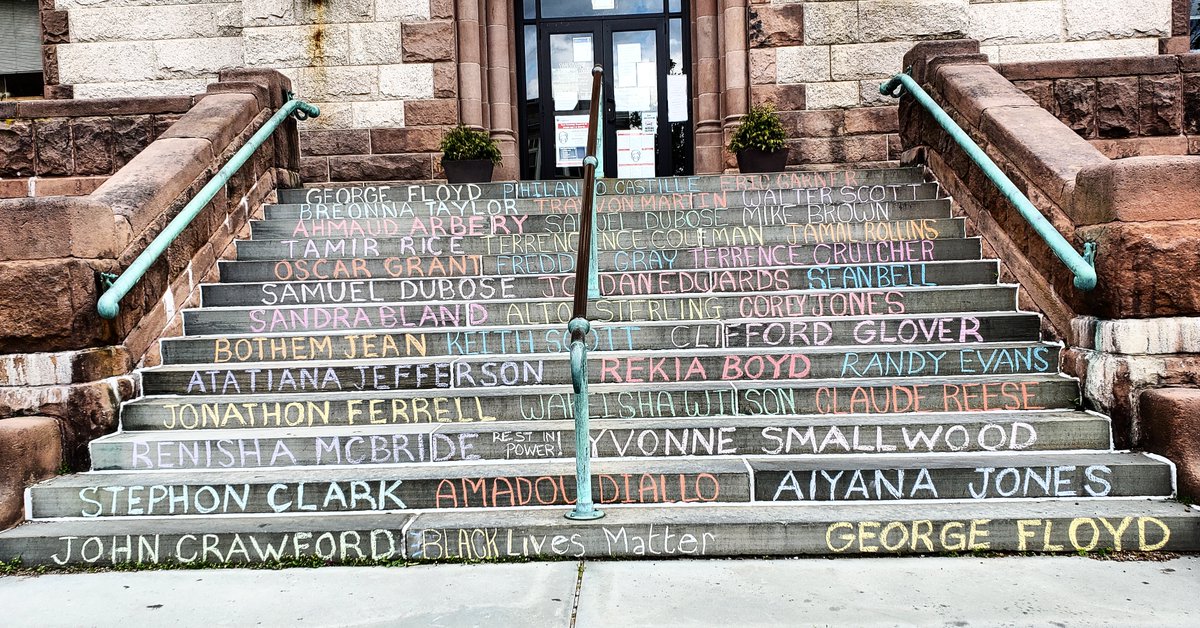 GEORGE FLOYD PIHILANDO CASTILLE ERIC GARNER
BREONNA TAYLOR TRAYVON MARTIN WALTER SCOTT
AHMAUD ARBERY SAMUEL DUBOSE MIKE BROWN
TAMIR RICE TERRENCE COLEMAN JAMAL ROLLINS
OSCAR GRANT FREDDY GRAY TERRENCE CRUTCHER
SAMUEL DUBOSE JORDAN EDWARDS SEAN BELL
SANDRA BLAND ALTON STERLING COREY JONES
BOTHEM JEAN KEITH SCOTT CLIFFORD GLOVER
ATATIANA JEFFERSON REKIA BOYD RANDY EVANS
JONATHON FERRELL WILSON CLAUDE REESE
RENISHA MCBRIDE REST IN POWER! YVONNE SMALLWOOD
STEPHON CLARK AMADOU DIALLO AIYANA JONES
JOHN CRAWFORD BLACK Lives Matter GEORGE FLOYD